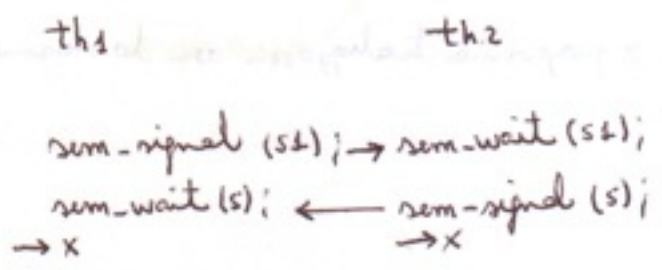 th1 th2
sem_signal (s1); → sem_wait (s1);
sem_wait (s); ← sem_signal (s);
→ x → x